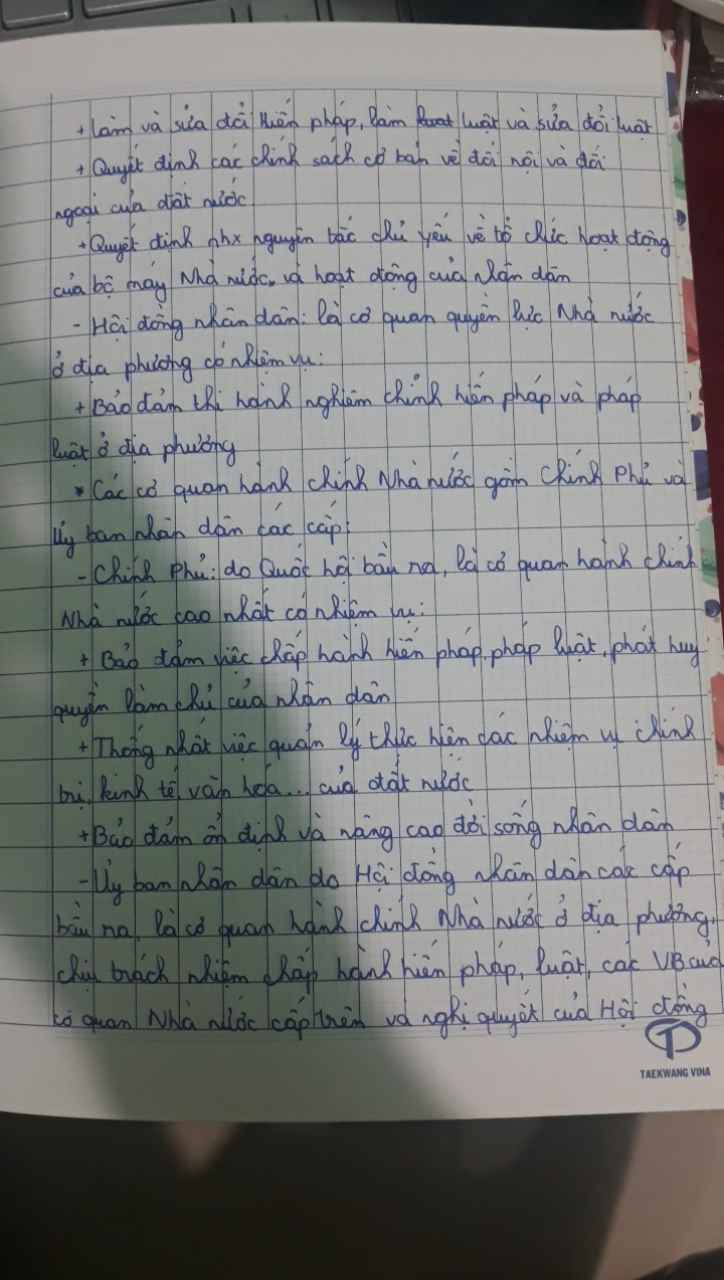 + Làm và sửa đổi hiến pháp, làm luật và sửa đổi luật
+ Quyết định các chính sách cơ bản về đối nội và đối
ngoại của đất nước
+ Quyết định nhx nguyên tắc chủ yếu về tổ chức hoạt động
của bộ máy Nhà nước, và hoạt động của nhân dân
- Hội đồng nhân dân: là cơ quan quyền lực Nhà nước
ở địa phương có nhiệm vụ:
+ Bảo đảm thi hành nghiêm chỉnh hiến pháp và pháp
luật ở địa phương
* Các cơ quan hành chính Nhà nước gồm Chính Phủ và
Ủy ban nhân dân các cấp:
- Chính Phủ: do Quốc hội bầu ra, là cơ quan hành chính
Nhà nước cao nhất có nhiệm vụ:
+ Bảo đảm việc chấp hành hiến pháp, pháp luật, phát huy
quyền làm chủ của nhân dân
+ Thống nhất việc quản lý thực hiện các nhiệm vụ chính
trị, kinh tế, văn hóa... của đất nước
+ Bảo đảm ổn định và nâng cao đời sống nhân dân
- Ủy ban nhân dân do Hội đồng nhân dân các cấp
bầu ra, là cơ quan hành chính Nhà nước ở địa phương,
chịu trách nhiệm chấp hành hiến pháp, luật, các VB của
cơ quan Nhà nước cấp trên và nghị quyết của Hội đồng
TAEKWANG VINA